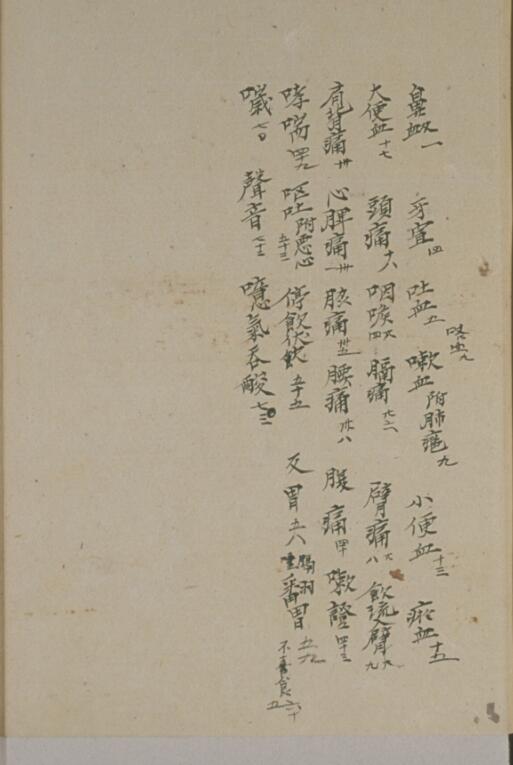 鼻血一 牙宣四 吐血五 咯血九 嗽血附肺瘡九 小便血十三 瘀血十五
大便血十七 頭痛十八 咽喉 膈痛 臂痛 飲流臂
肩背痛卅 心脾痛卅一 胲痛卅五 腰痛卅八 腹痛四十 嗽證四十三
哮喘四九 呕吐附悪心五十三 停飲伏飲五十五 反胃五八 番胃五九 不喜食六十五
噦七〇 聲音七十三 噫氣吞酸